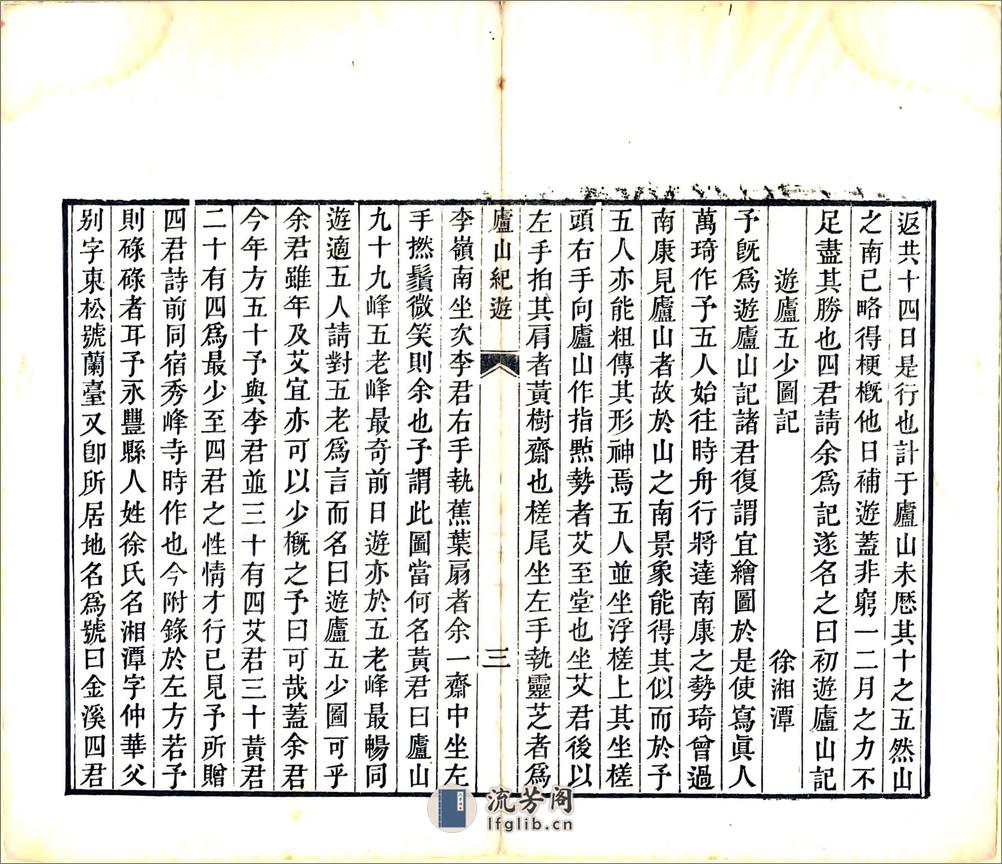 返共十四日是行也計于廬山未厯其十之五然山
之南已略得梗槪他日補遊蓋非窮一二月之力不
足盡其勝也四君請余爲記遂名之曰初遊廬山記
遊廬五少圖記　徐湘潭
予旣爲遊廬山記諸君復謂宜繪圖於是使寫眞人
萬琦作予五人始往時舟行將達南康之勢琦曾過
南康見廬山者故於山之南景象能得其似而於予
五人亦能粗傳其形神焉五人並坐浮槎上其坐槎
頭右手向廬山作指㸃勢者艾至堂也坐艾君後以
左手拍其肩者黃樹齋也槎尾坐左手執靈芝者爲
廬山紀遊　三
李嶺南坐次李君右手執蕉葉扇者余一齋中坐左
手撚鬚微笑則余也予謂此圖當何名黃君曰廬山
九十九峰五老峰最奇前日遊亦於五老峰最暢同
遊適五人請對五老爲言而名曰遊廬五少圖可乎
余君雖年及艾宜亦可以少槪之予曰可哉蓋余君
今年方五十予與李君並三十有四艾君三十黃君
二十有四爲最少至四君之性情才行已見予所贈
四君詩前同宿秀峰寺時作也今附錄於左方若予
則碌碌者耳予永豐縣人姓徐氏名湘潭字仲華父
别字東松號蘭臺又卽所居地名爲號曰金溪四君
流芳阁
lfglib.cn